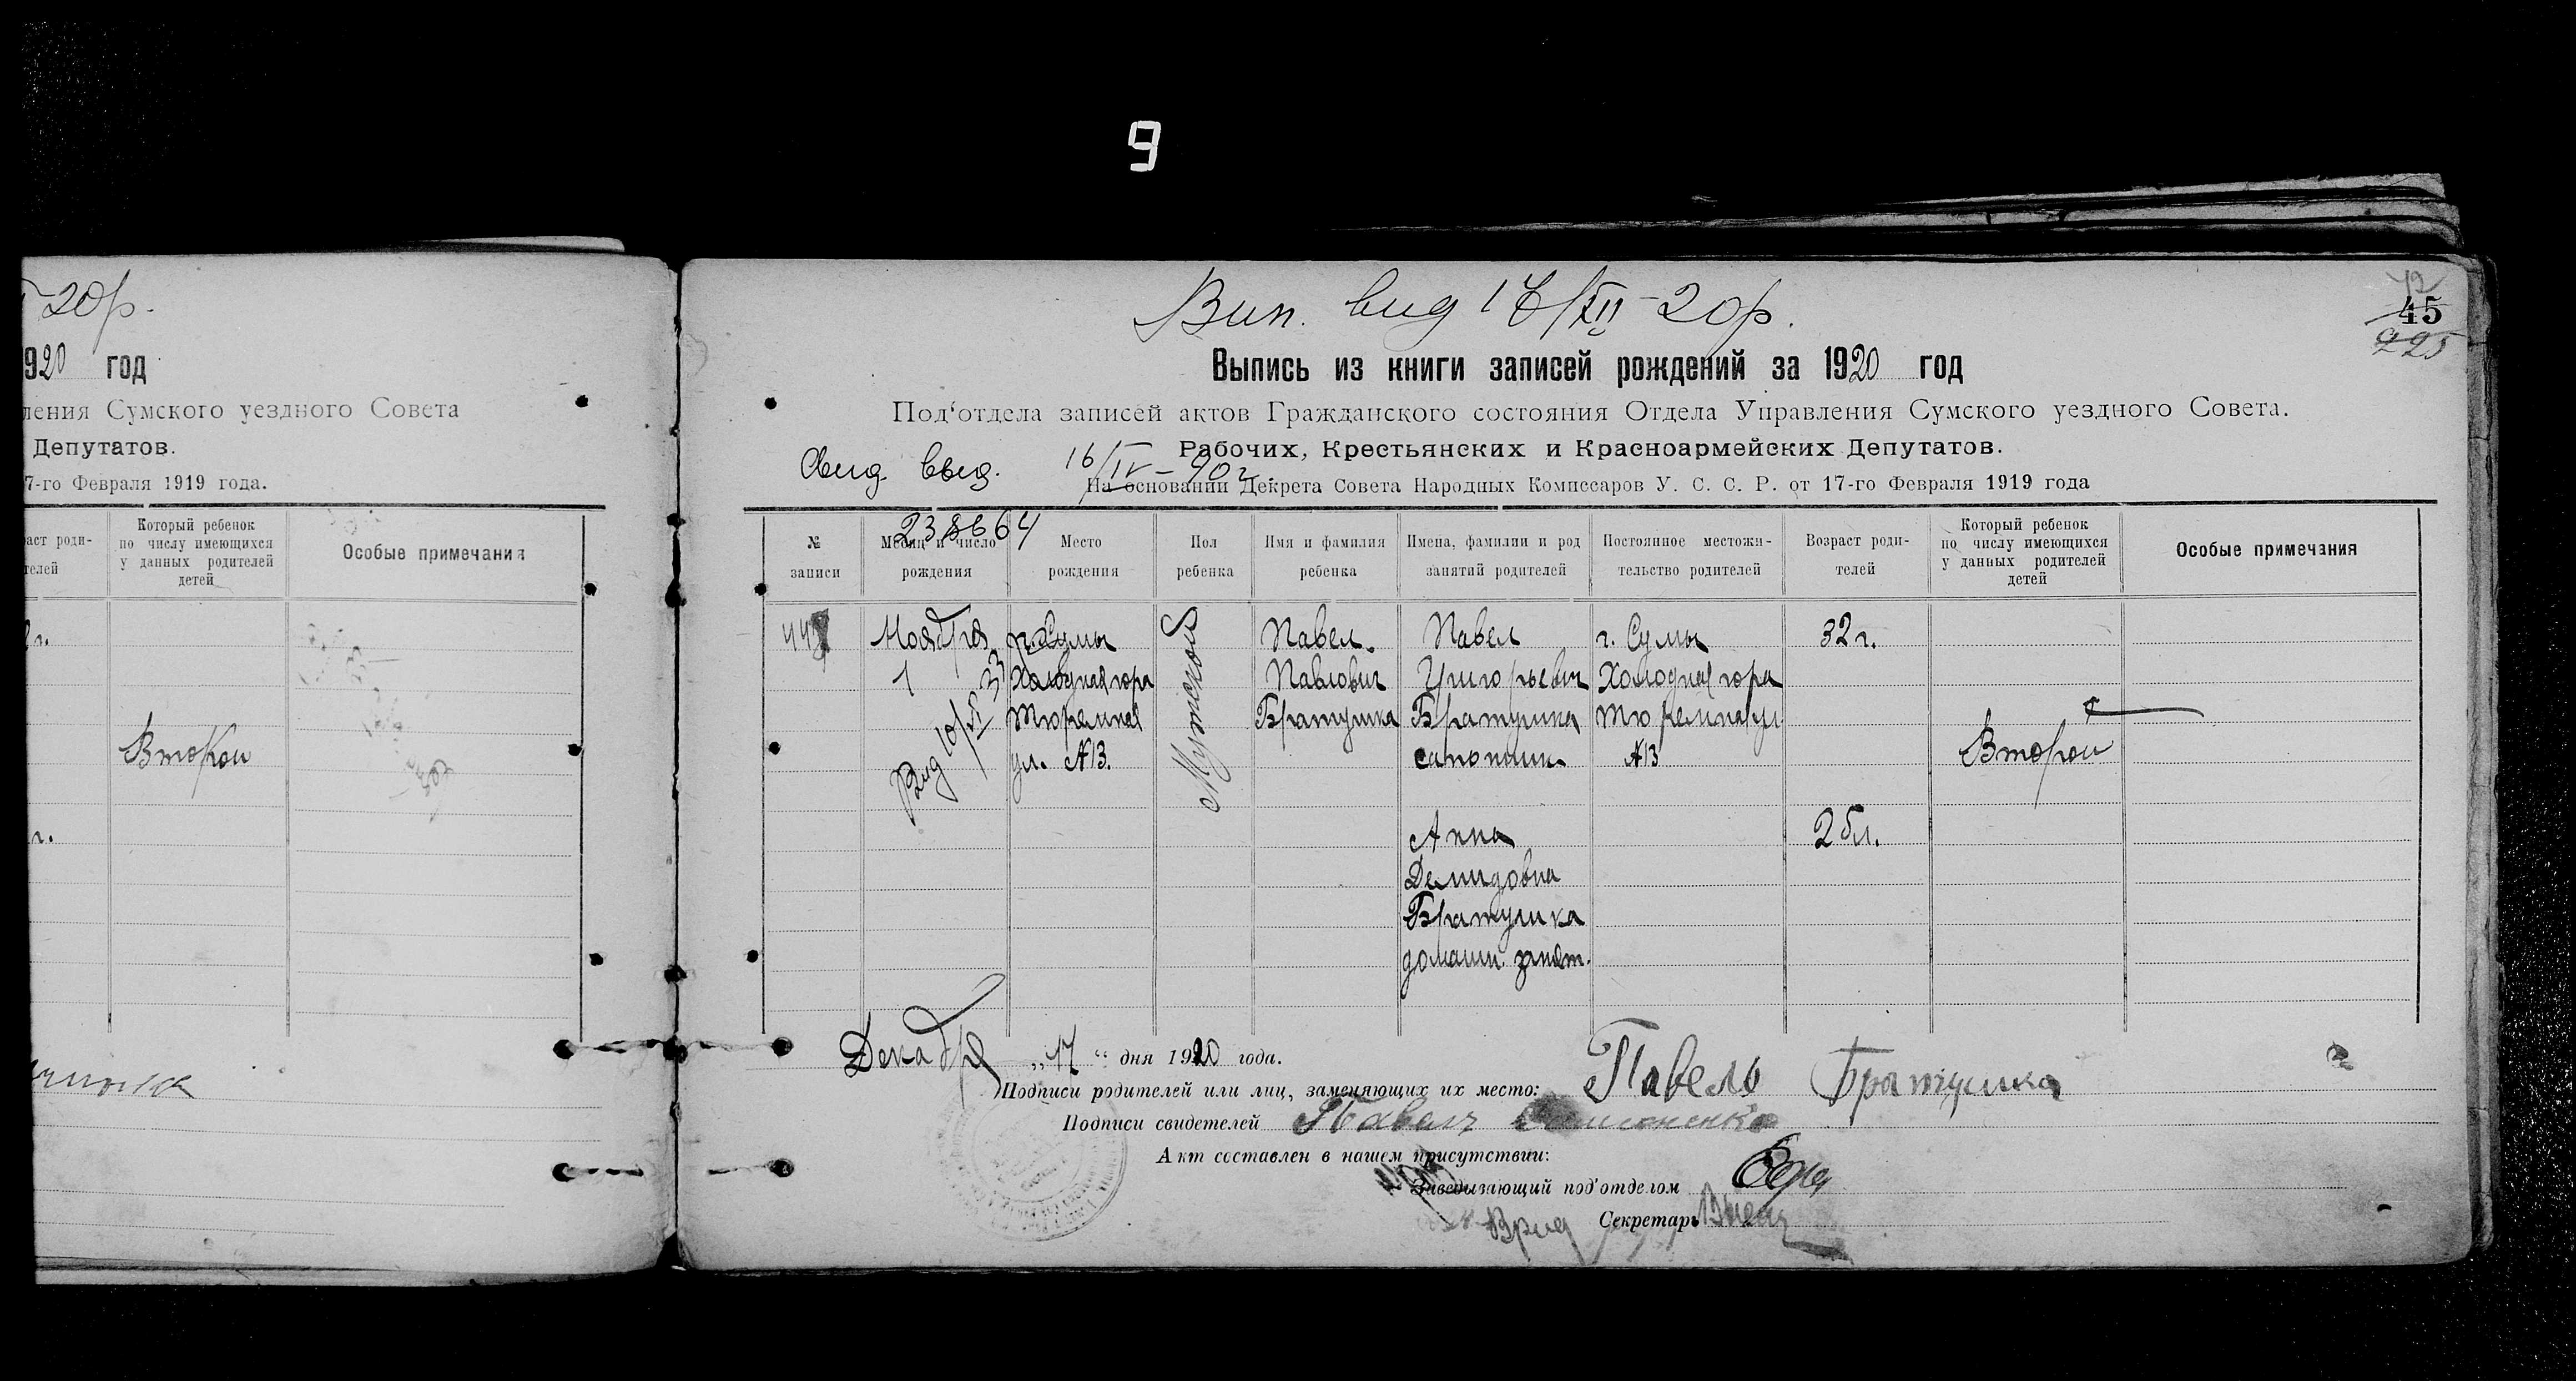 9
20р.
920 год
ления Сумского уездного Совета
Депутатов.
7-го Февраля 1919 года.
раст роди-
телей
Который ребенок
по числу имеющихся
у данных родителей
детей
Особые примечания
г.
Второй
г.
Вип. вид 17/XII-20р.
45
225
Выпись из книги записей рождений за 1920 год
Под‘отдела записей актов Гражданского состояния Отдела Управления Сумского уездного Совета.
Рабочих, Крестьянских и Красноармейских Депутатов.
Свид. выд. 16/IV-
На основании Декрета Совета Народных Комиссаров У. С. С. Р. от 17-го Февраля 1919 года
№
записи
Месяц и число
рождения
Место
рождения
Пол
ребенка
Имя и фамилия
ребенка
Имена, фамилии и род
занятий родителей
Постоянное местожи-
тельство родителей
Возраст роди-
телей
Который ребенок
по числу имеющихся
у данных родителей
детей
Особые примечания
Ноября
1
г. Сумы
Холодная гора
Тюремная
ул. №13.
Мужской
Павел
Павлович
Братушка
Павел
Григорьевич
Братушка
сапожник
г. Сумы
Холодная гора
Тюремная ул
№13
32 г.
Второй
Анна
Демидовна
Братушка
домашн. занят.
25л.
Декабря „17“ дня 1920 года.
Подписи родителей или лиц, заменяющих их место: Павель Братушка
Подписи свидетелей Павел
Акт составлен в нашем присутствии:
Заведывающий под‘отделом
Врид Секретарь